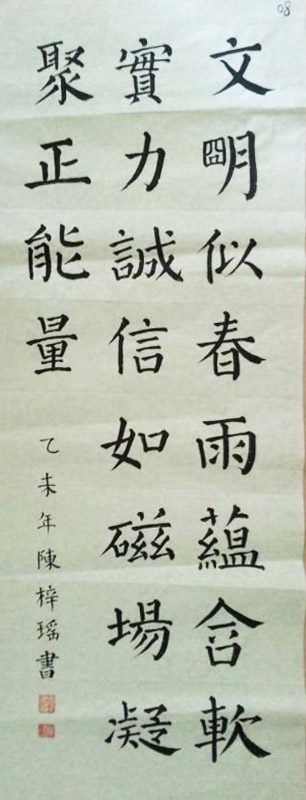 文明似春雨蘊含軟
實力誠信如磁場凝
聚正能量
乙未年陳梓瑶書
08